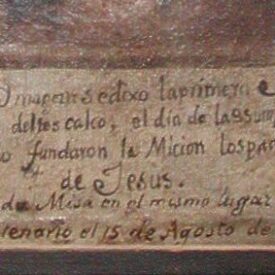 Ymagen se dixo la primera
del tescalco, el día de la ssum
fundaron la Micion los pa
de Jesus.
de Misa en el mismo lugar
tenario el 15 de Agosto de